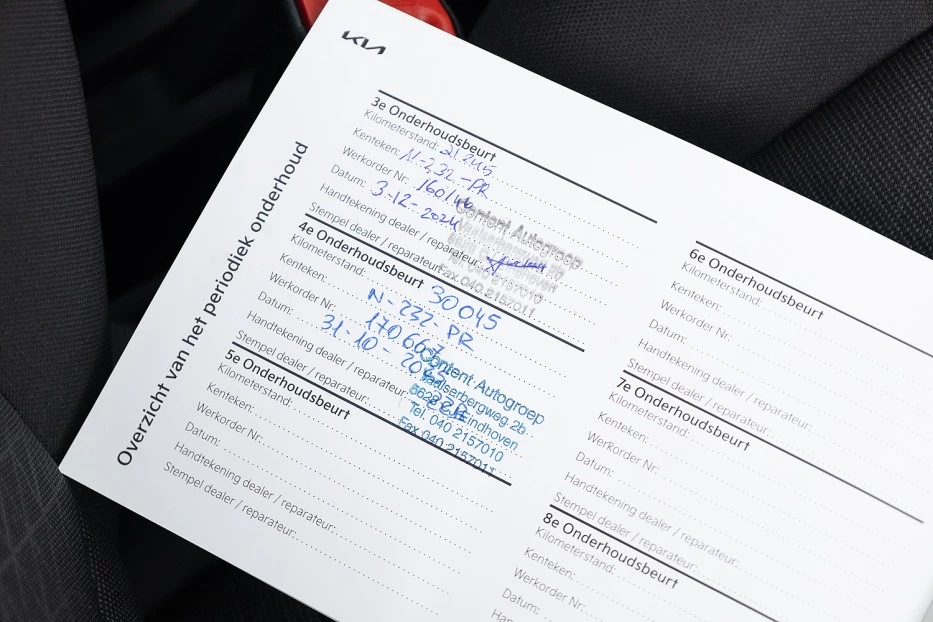 KIA
Overzicht van het periodiek onderhoud
3e Onderhoudsbeurt
Kilometerstand: 21.245
Kenteken: N-232-PR
Werkorder Nr:
Datum: 3-12-2024
Handtekening dealer / reparateur:
Stempel dealer / reparateur:
Content Autogroep
Tel. 040 2157010
Fax.040.2157011
4e Onderhoudsbeurt
Kilometerstand: 30045
Kenteken: N-232-PR
Werkorder Nr: 170667
Datum: 31-10-
Handtekening dealer / reparateur:
Stempel dealer / reparateur:
Content Autogroep
Eindhoven
Tel. 040 2157010
Fax.040 2157011
5e Onderhoudsbeurt
Kilometerstand:
Kenteken:
Werkorder Nr:
Datum:
Handtekening dealer / reparateur:
Stempel dealer / reparateur:
6e Onderhoudsbeurt
Kilometerstand:
Kenteken:
Werkorder Nr:
Datum:
Handtekening dealer / reparateur:
Stempel dealer / reparateur:
7e Onderhoudsbeurt
Kilometerstand:
Kenteken:
Werkorder Nr:
Datum:
Handtekening dealer / reparateur:
Stempel dealer / reparateur:
8e Onderhoudsbeurt
Kilometerstand:
Kenteken:
Werkorder Nr:
Datum: